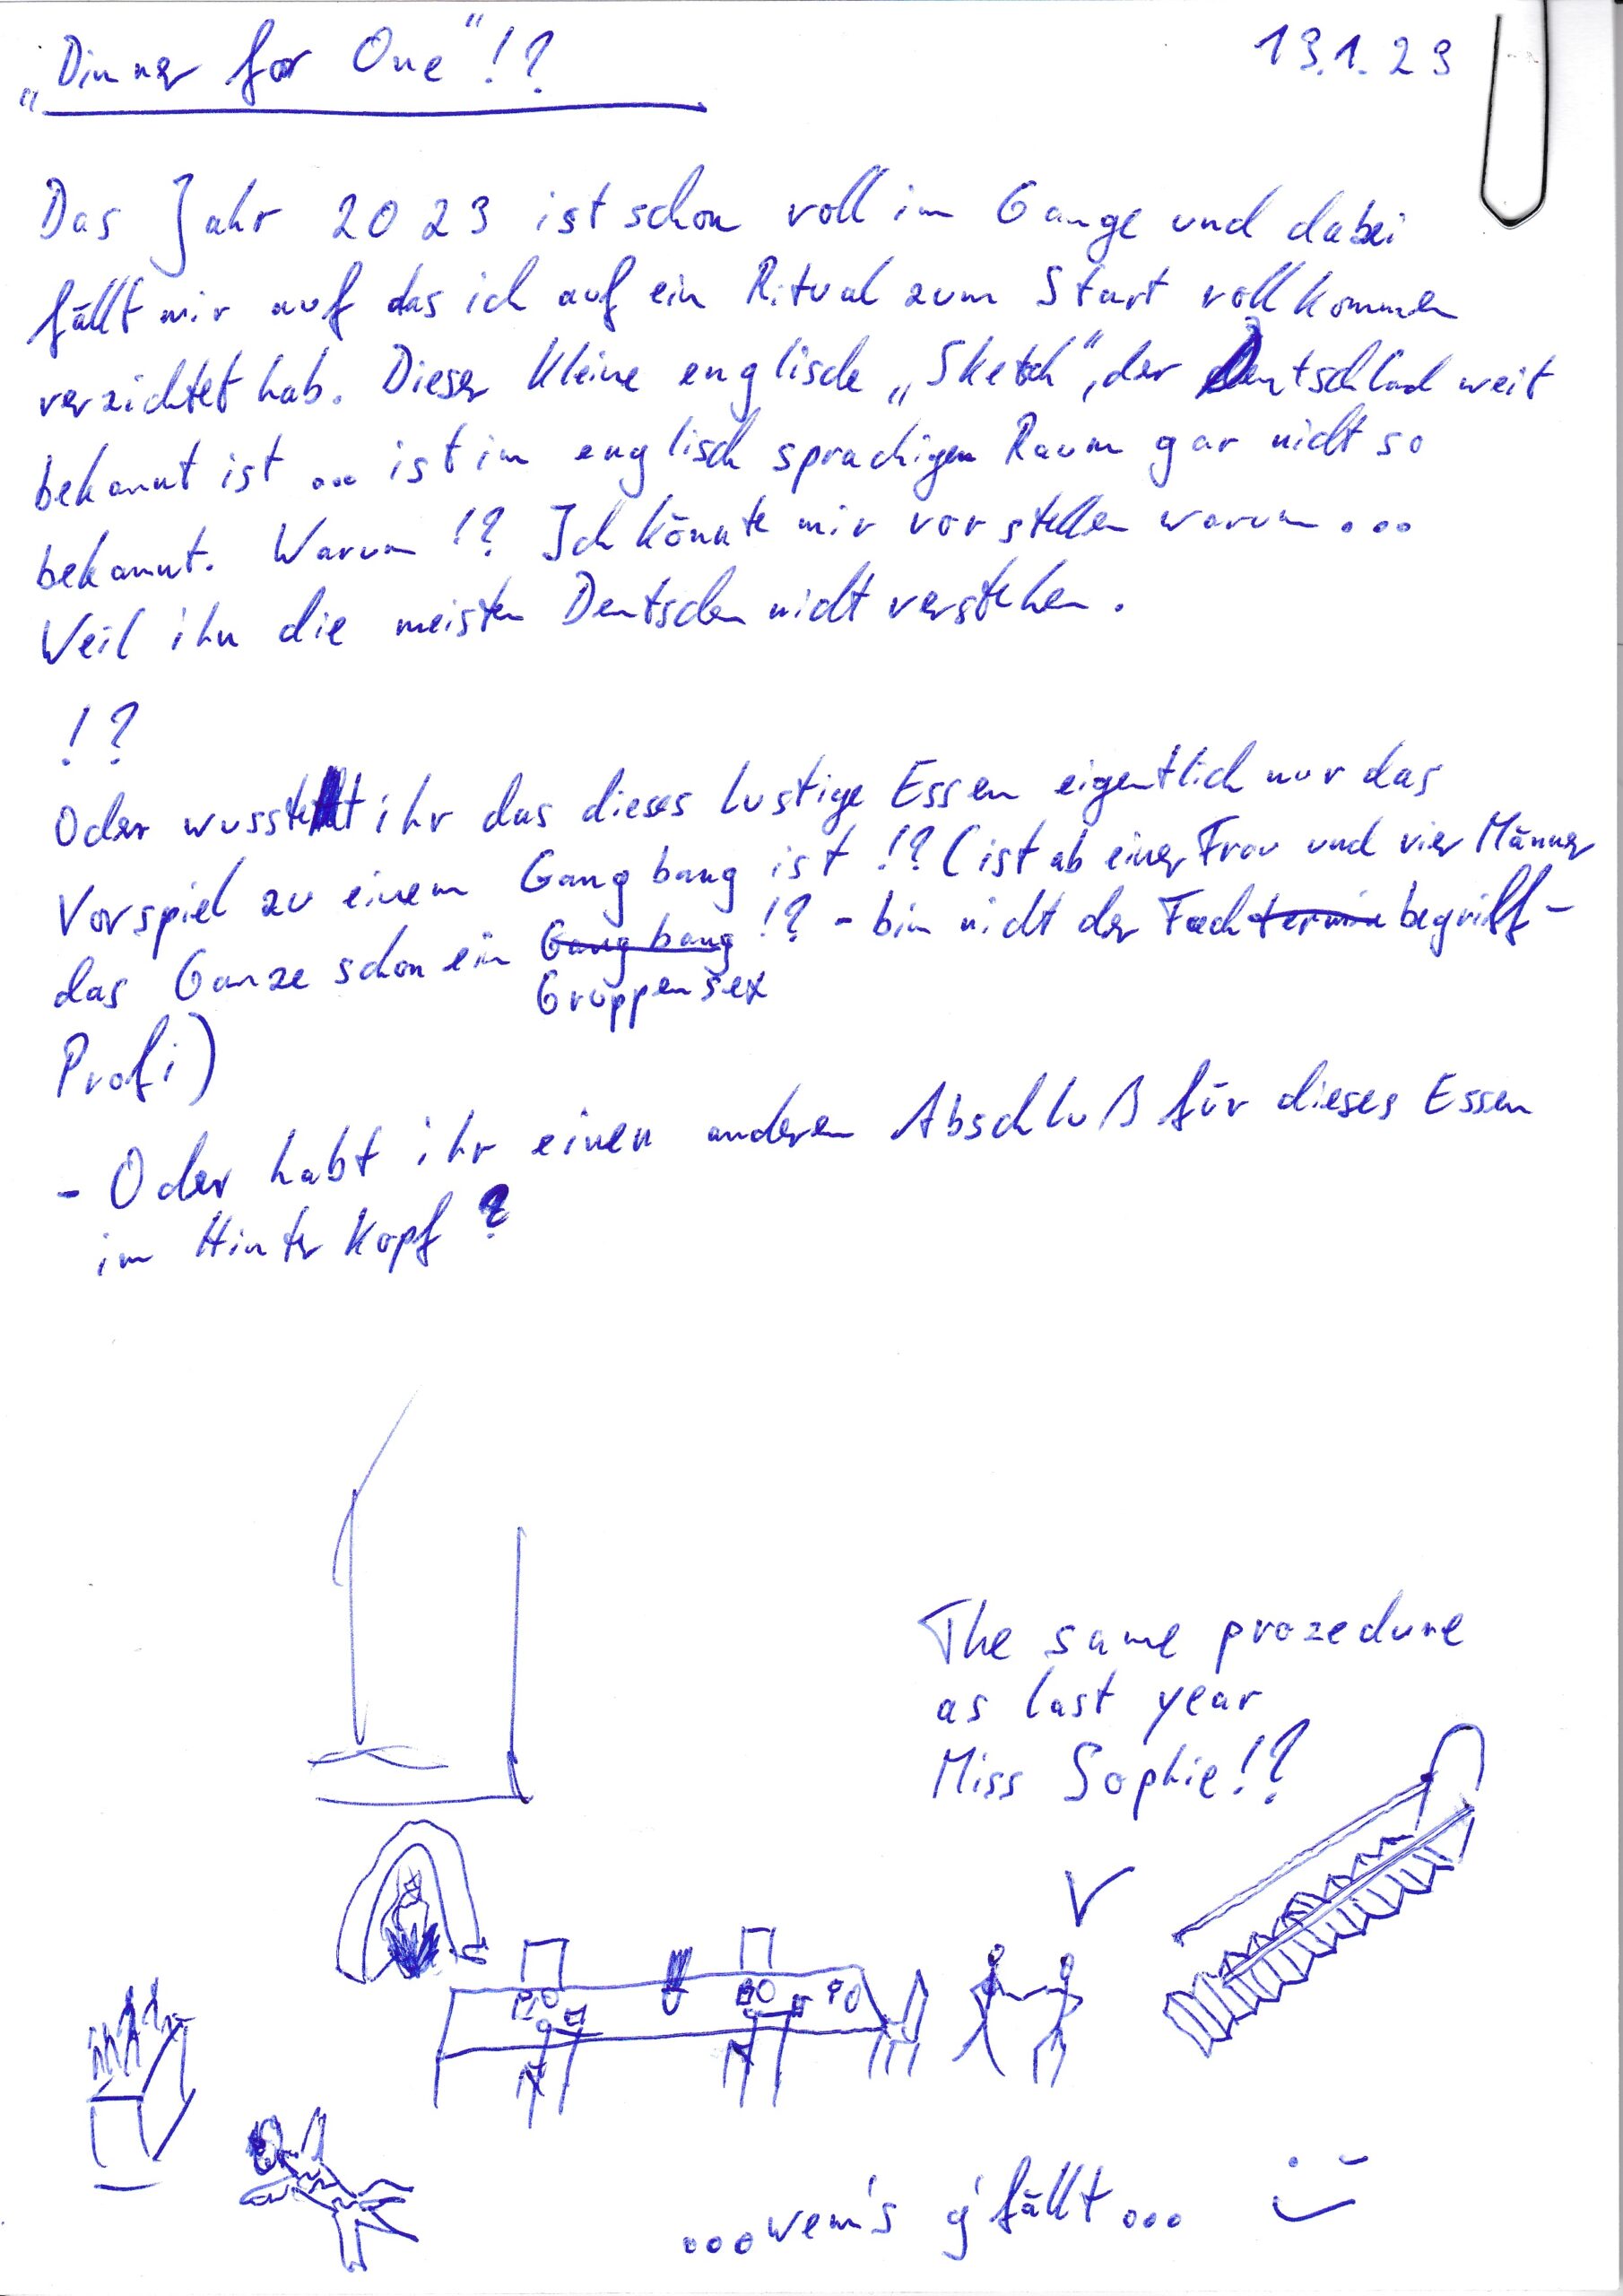 „Dinner for One"!?
13.1.23
Das Jahr 2023 ist schon voll im Gange und dabei
fällt mir auf das ich auf ein Ritual zum Start vollkommen
verzichtet hab. Dieser kleine englische „Sketch", der Deutschlad weit
bekannt ist ... ist im englisch sprachigen Raum gar nicht so
bekannt. Warum !? Ich könnte mir vorstellen warum...
Weil ihn die meisten Deutschen nicht verstehen.
!?
Oder wusstet ihr das dieses lustige Essen eigentlich nur das
Vorspiel zu einem Gang bang ist !? (ist ab einer Frau und vier Männer
das Ganze schon ein Gang bang !? - bin nicht der Fachtermin begriff -
Gruppensex
Profi)
- Oder habt ihr einen anderen Abschluß für dieses Essen
im Hinterkopf ?
The same prozedure
as last year
Miss Sophie!?
...wem's g'fällt...